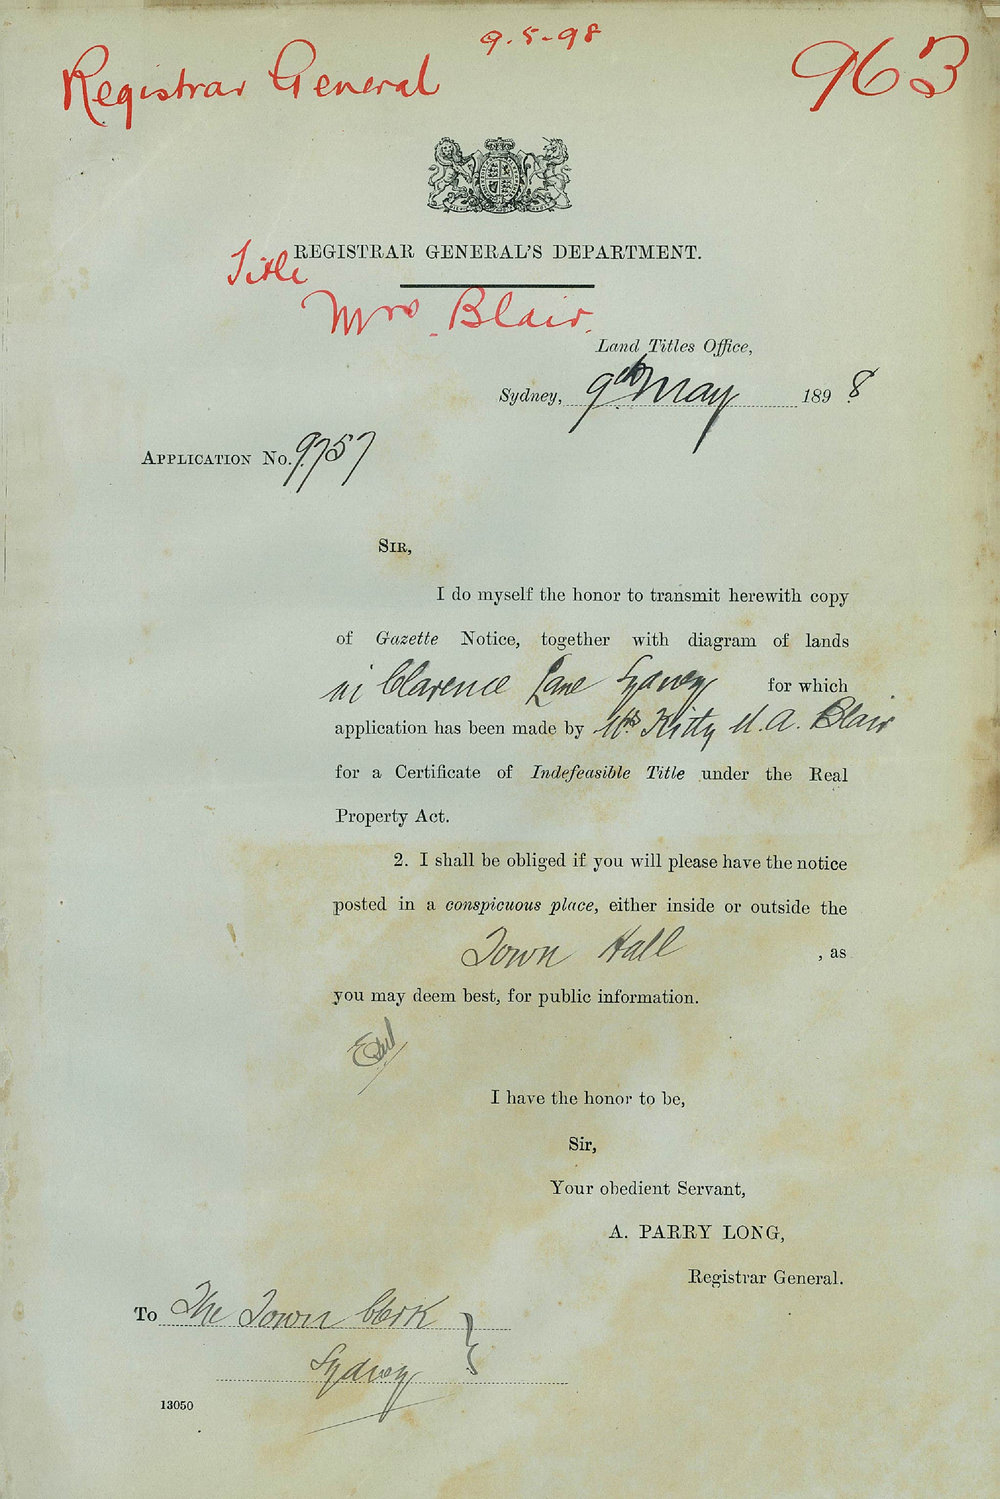 9.5-98
Registrar General
963
REGISTRAR GENERAL'S DEPARTMENT.
Title
Mrs Blair.
Land Titles Office,
Sydney, 9th May 1898
APPLICATION No. 9757
SIR,
I do myself the honor to transmit herewith copy
of Gazette Notice, together with diagram of lands
in Clarence Lane Sydney for which
application has been made by Mrs Kitty M. A. Blair
for a Certificate of Indefeasible Title under the Real
Property Act.
2. I shall be obliged if you will please have the notice
posted in a conspicuous place, either inside or outside the
Town Hall , as
you may deem best, for public information.
I have the honor to be,
Sir,
Your obedient Servant,
A. PARRY LONG,
Registrar General.
To The Town Clerk
Sydney
13050